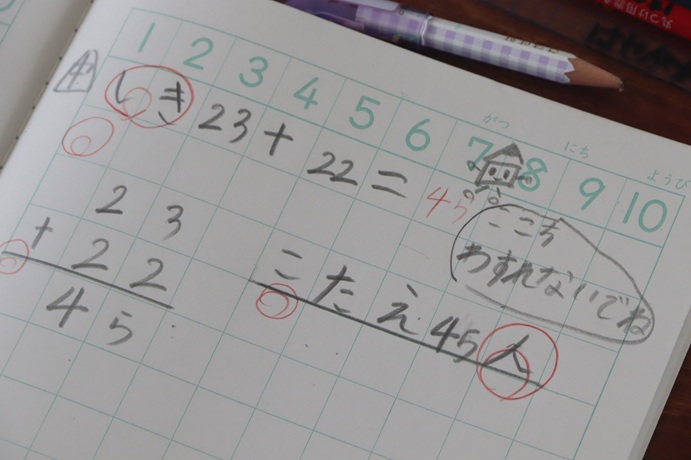 1 2 3 4 5 6 7 8 9 10
がつ にち ようび
しき 23+22=45
ここも
わすれないでね
23
+22
45
こたえ45人